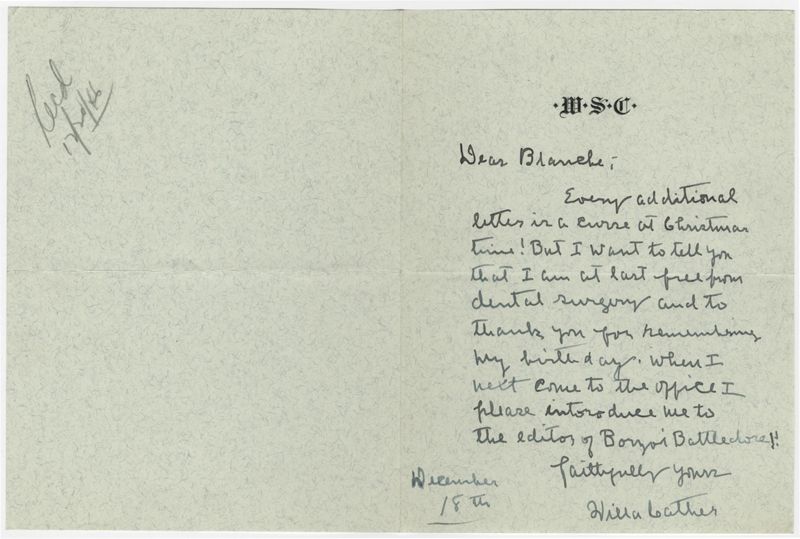 Recd
·W·S·C·
Dear Blanche;
Every additional
letter is a curse at Christmas
time! But I want to tell you
that I am at last free from
dental surgery and to
thank you for remembering
my birthday. When I
next come to the office I
please introduce me to
the editor of Borzoi Battledore!!
Faithfully yours
Willa Cather
December
18th